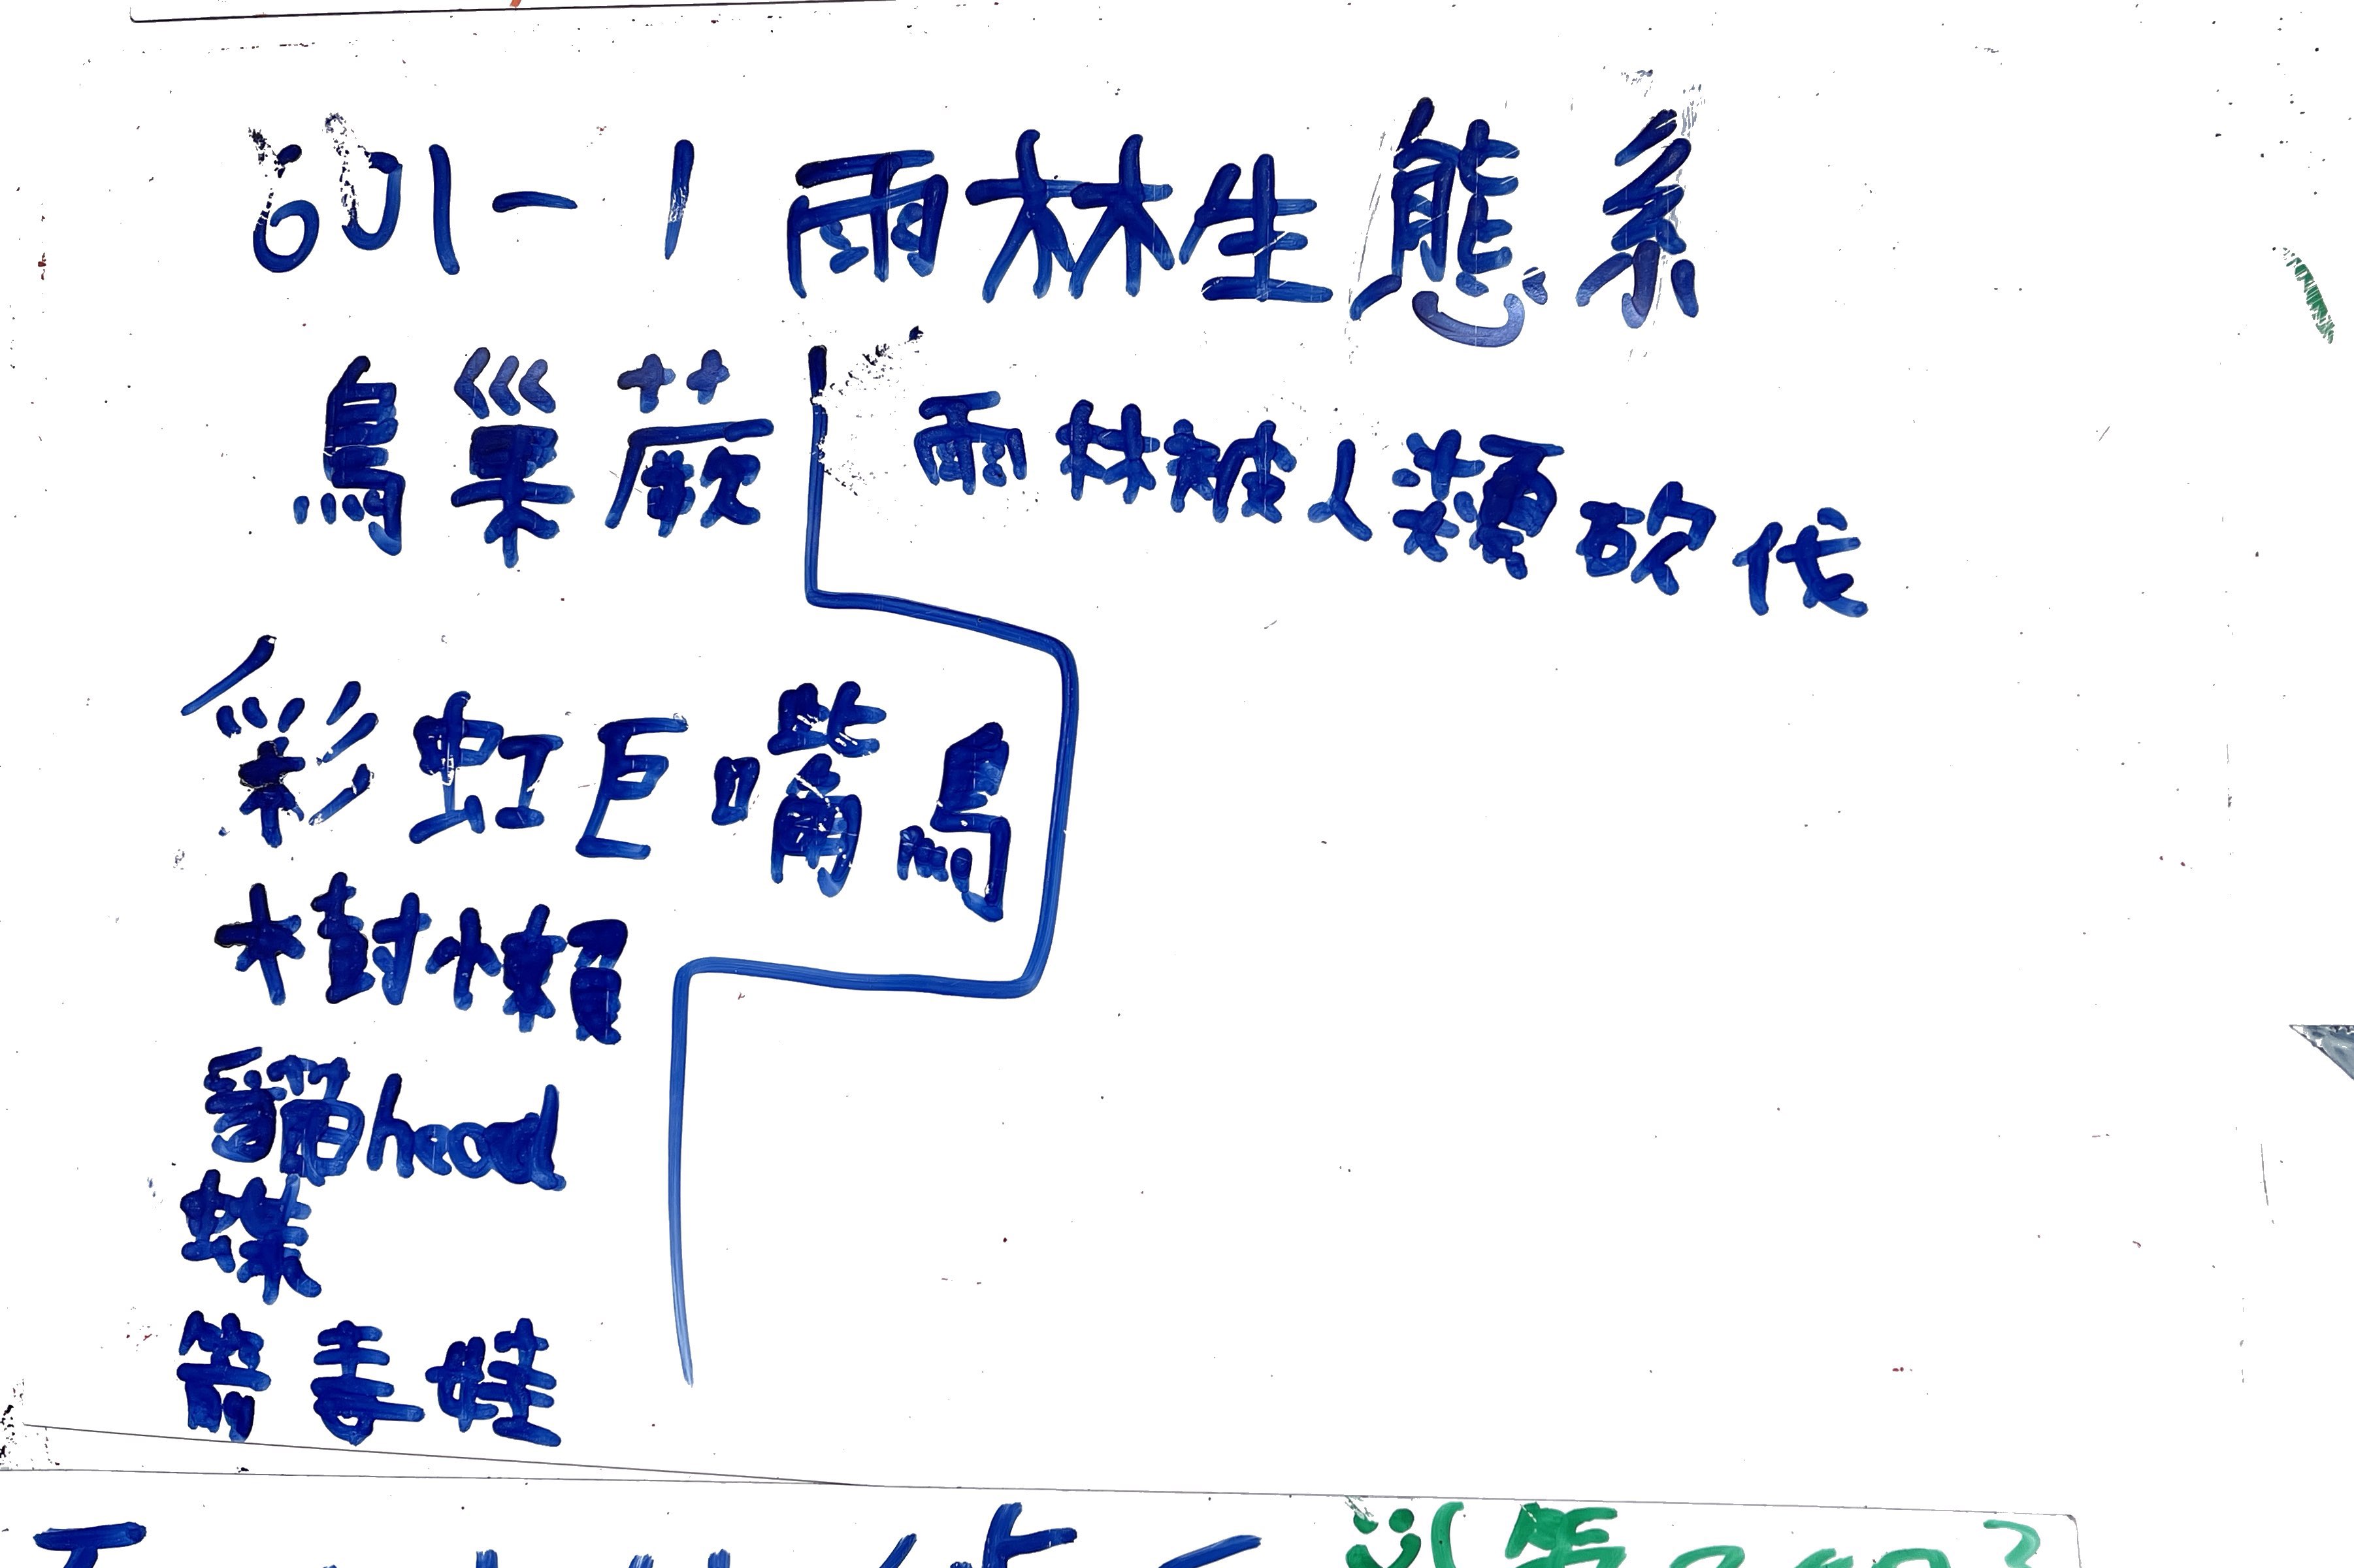 601-1 雨林生態系
鳥巢蕨
雨林被人類砍伐
彩虹巨嘴鳥
樹懶
貓head
蝶
箭毒蛙